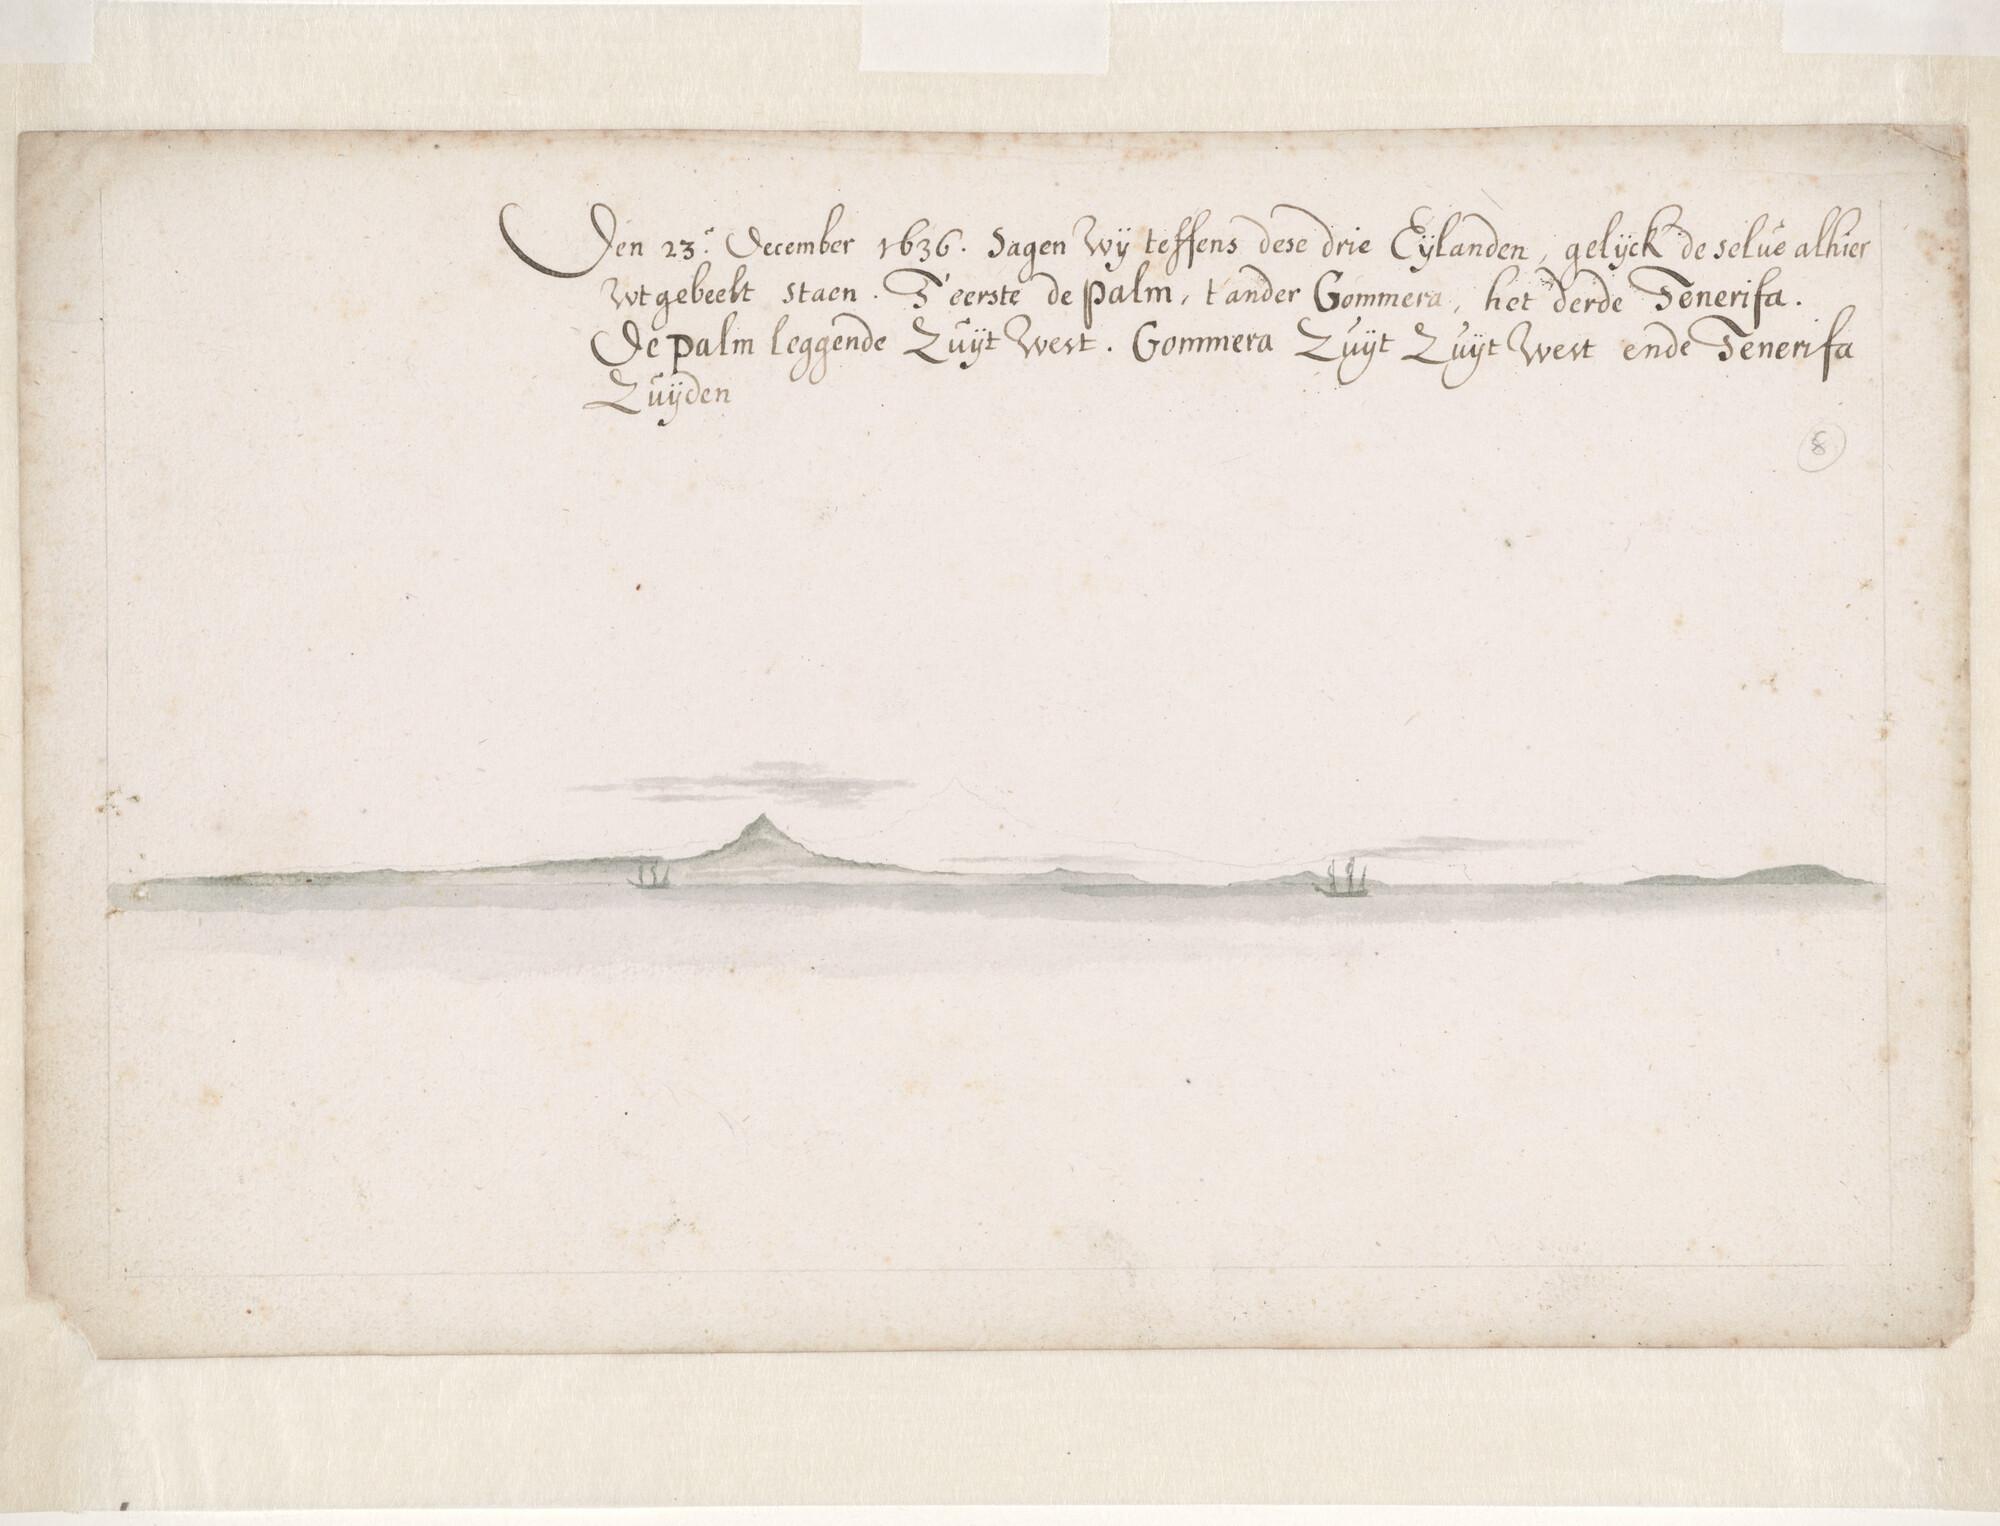 Den 23.e December 1636. Sagen Wÿ teffens dese drie Eÿlanden, gelÿck de selve alhier
wtgebeelt staen. T'eerste de palm, t'ander Gommera, het derde Tenerifa.
De palm leggende Zuÿt West. Gommera Zuÿt Zuÿt West ende Tenerifa
Zuÿden
8